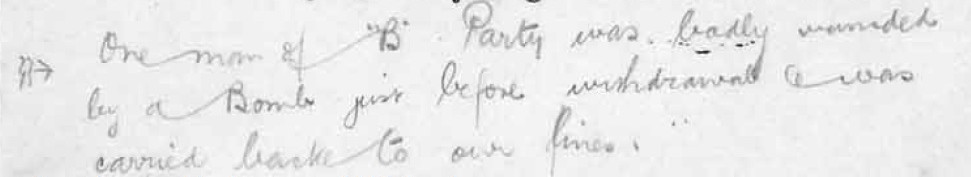 One man of "B" Party was badly wounded
by a Bomb just before withdrawal & was
carried back to our lines.